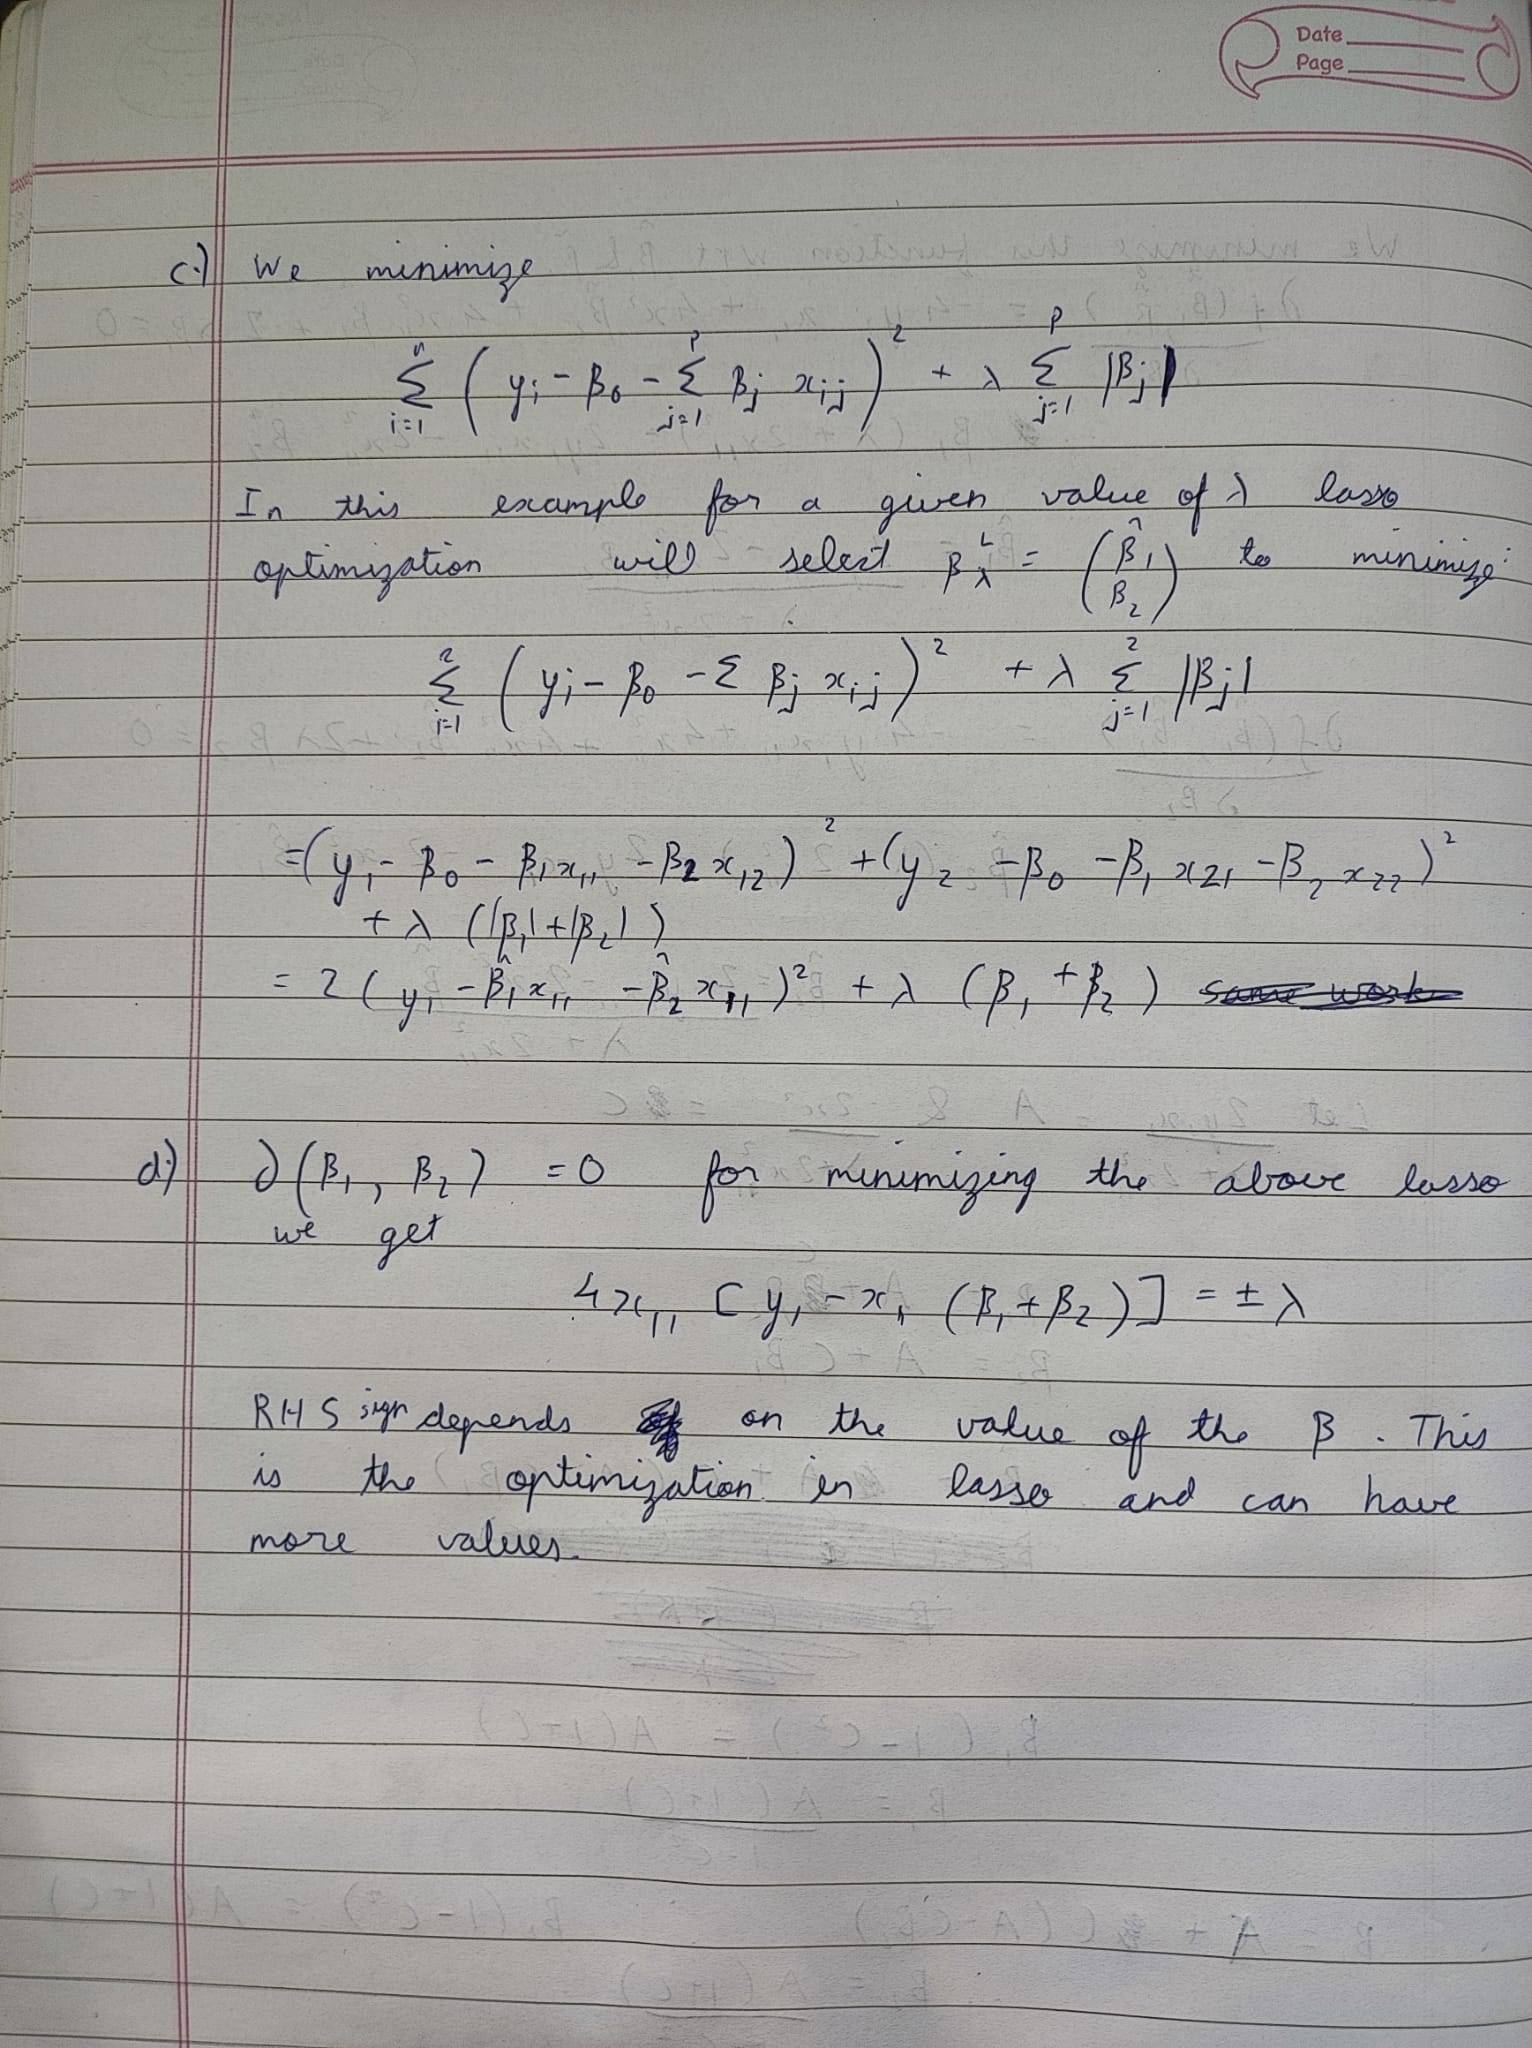 Date
Page
c.) We minimize
n Σ i=1 ( yi - β0 - p Σ j=1 βj xij )² + λ p Σ j=1 |βj|
In this example for a given value of λ lasso
optimization will select β^L_λ = (β̂1 β2) to minimize:
2 Σ i=1 ( yi - β0 - Σ βj xij )² + λ 2 Σ j=1 |βj|
= (y1 - β0 - β1x11 - β2 x12)² + (y2 - β0 - β1 x21 - β2 x22)²
+ λ (|β1|+|β2|)
= 2 ( y1 - β̂1 x11 - β̂2 x11 )² + λ (β1 + β2)
d.) ∂(β1, β2) = 0 for minimizing the above lasso
we get
4x11 [y1 - x11 (β1+β2)] = ± λ
RHS sign depends on the value of the β. This
is the optimization in lasso and can have
more values.